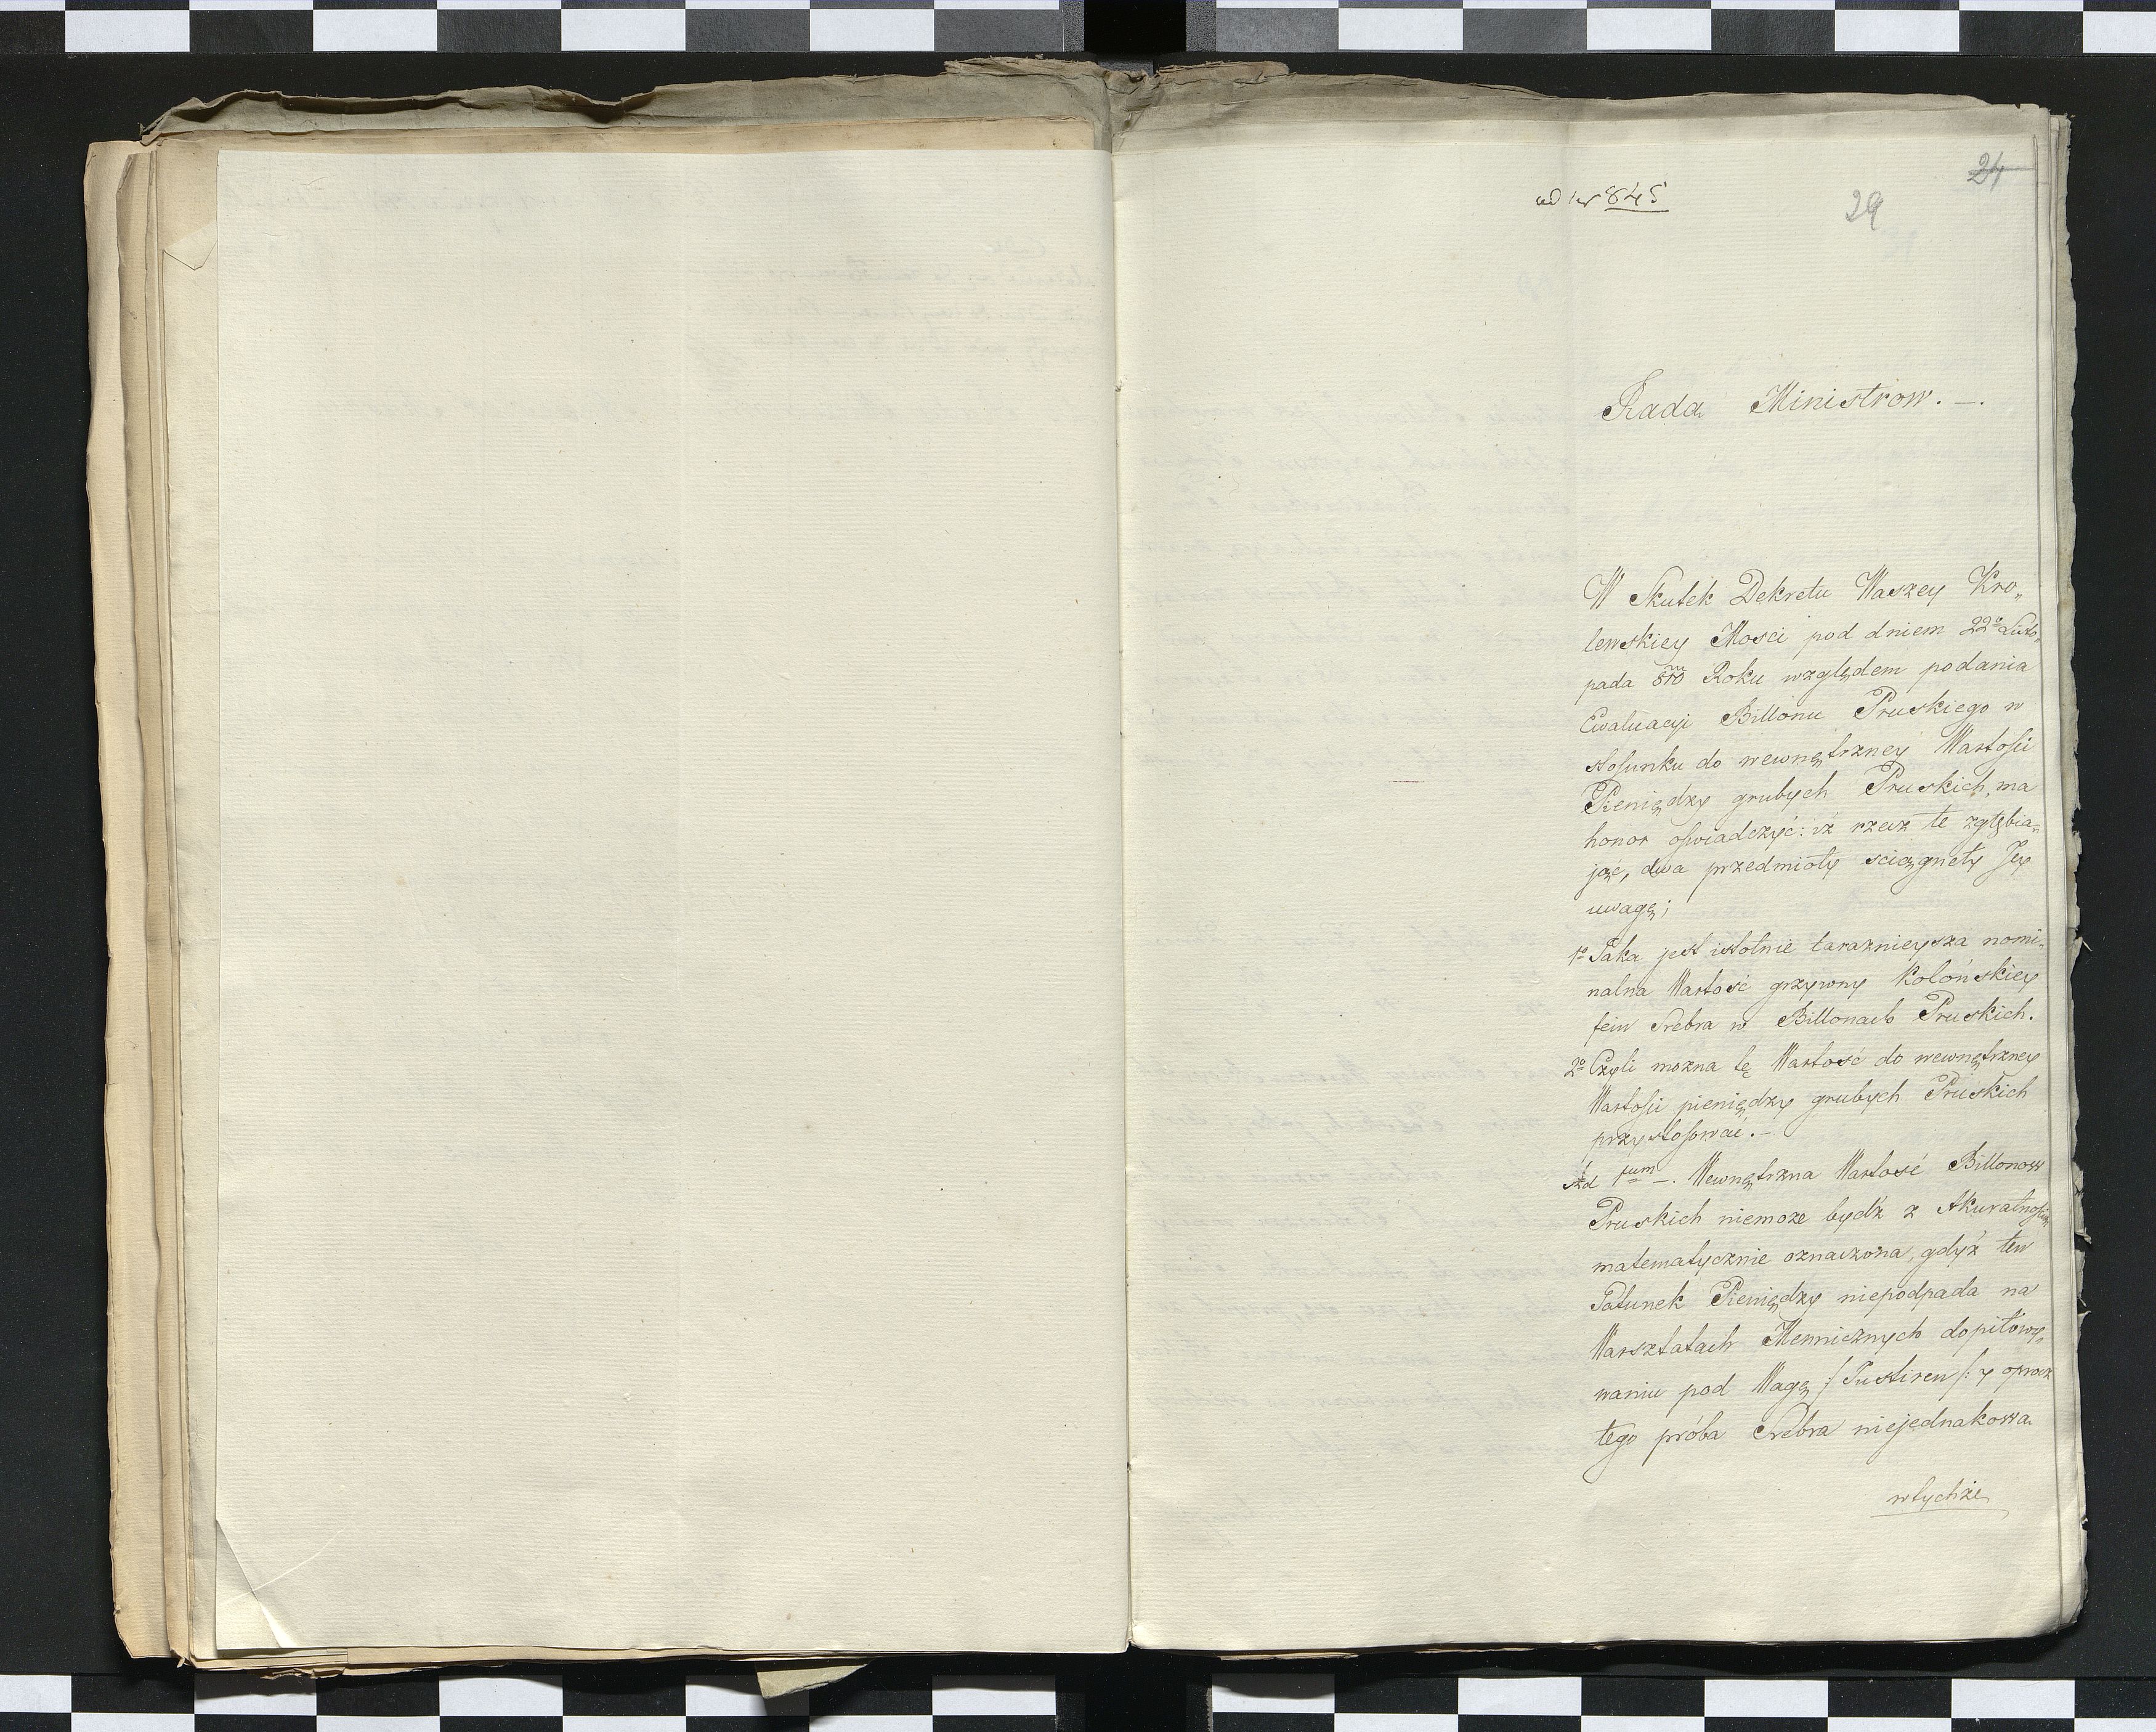 ad Nr 845
24
29
Rada Ministrow. —.
W Skutek Dekretu Waszey Kro„
lewskiey Mosci pod dniem 22o Listo„
pada 810 Roku względem podania
Ewaluacyi Billonu Pruskiego w
stosunku do wewnętrzney Wartosci
Pieniędzy grubych Pruskich, ma
honor oswiadczyć: iż rzecz te zgłębia„
jąc, dwa przedmioty sciągnęły Jey
uwagę;
1o Jaka jest istotnie taraznieysza nomi„
nalna Wartość grzywny Kolońskiey
fein Srebra w Billonach Pruskich.
2o Czyli mozna tę Wartość do wewnętrzney
Wartosci pieniędzy grubych Pruskich
przystosować. —
Ad 1mum —. Wewnętrzna Wartość Billonow
Pruskich niemoze bydź z Akuratnością
matematycznie oznaczona, gdyż ten
Gatunek Pieniędzy niepodpada na
Warsztatach Mennicznych dopiłowy„
waniu pod Wagę /: Justiren /: y oprocz
tego próba Srebra niejednakowa
wtychże